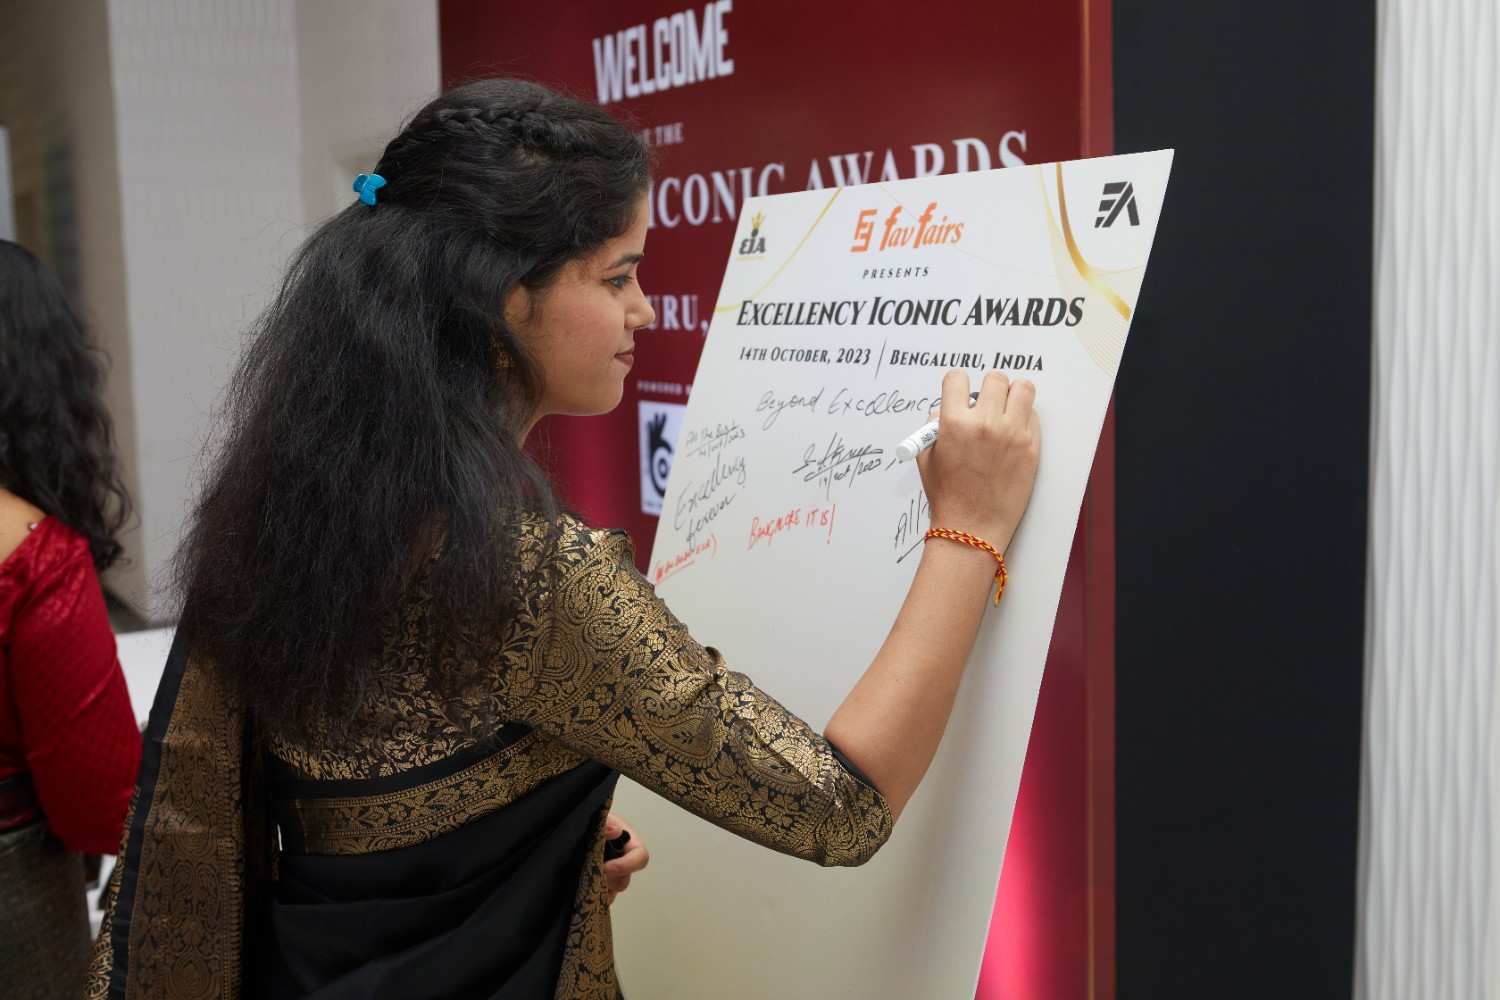 WELCOME
THE
ICONIC AWARDS
URU,
POWERED
EIA
fav fairs
EA
PRESENTS
EXCELLENCY ICONIC AWARDS
14TH OCTOBER, 2023 | BENGALURU, INDIA
Beyond Excellence
All The Best
14/oct/2023
14/oct/2023
Excellency
forever
BANGALORE IT IS!
All